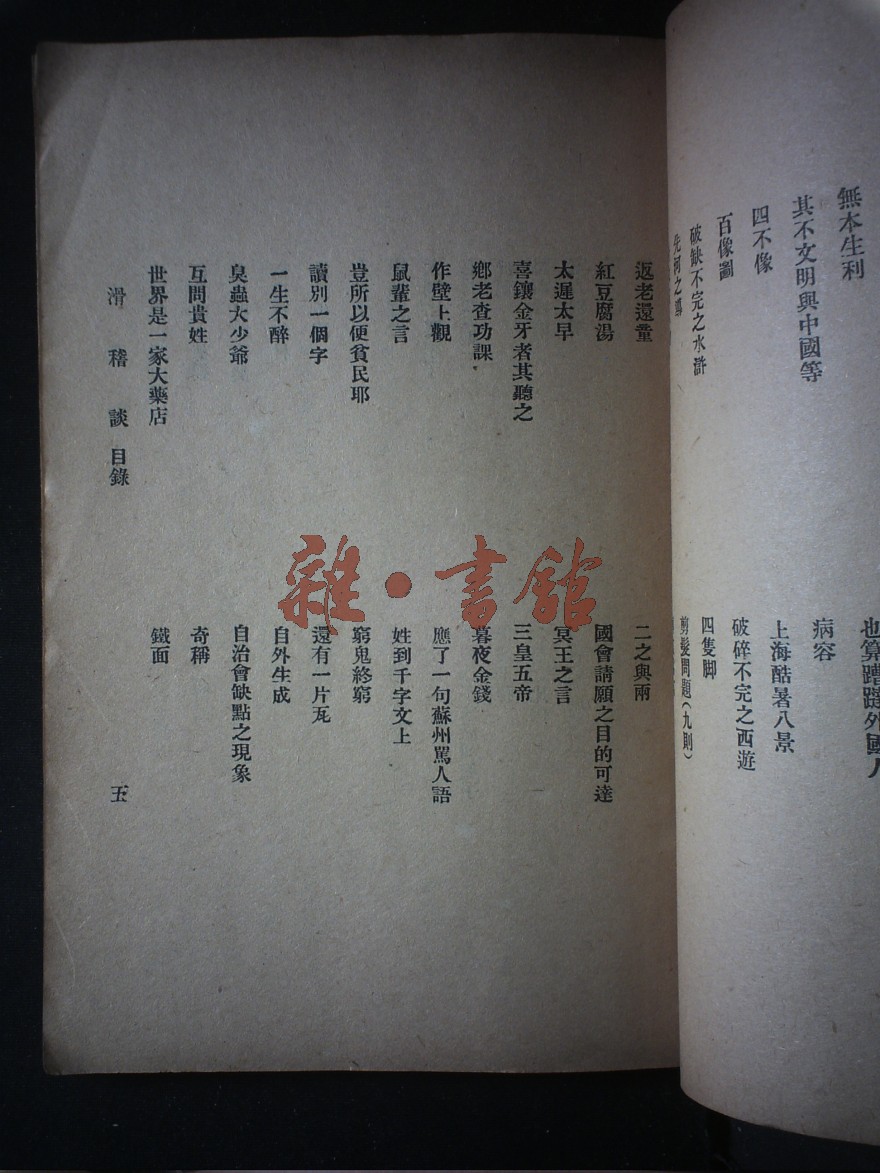 無本生利
其不文明與中國等
四不像
百像圖
破缺不完之水滸
病容
上海酷暑八景
破碎不完之西遊
四隻脚
剪髮問題(九則)
返老還童
紅豆腐湯
太遲太早
喜鑲金牙者其聽之
鄉老查功課
作壁上觀
鼠輩之言
豈所以便貧民耶
讀別一個字
一生不醉
臭蟲大少爺
互問貴姓
世界是一家大藥店
二之與兩
國會請願之目的可達
冥王之言
三皇五帝
暮夜金錢
應了一句蘇州罵人語
姓到千字文上
窮鬼終窮
還有一片瓦
自外生成
自治會缺點之現象
奇稱
鐵面
滑稽談目錄
五
雜·書館